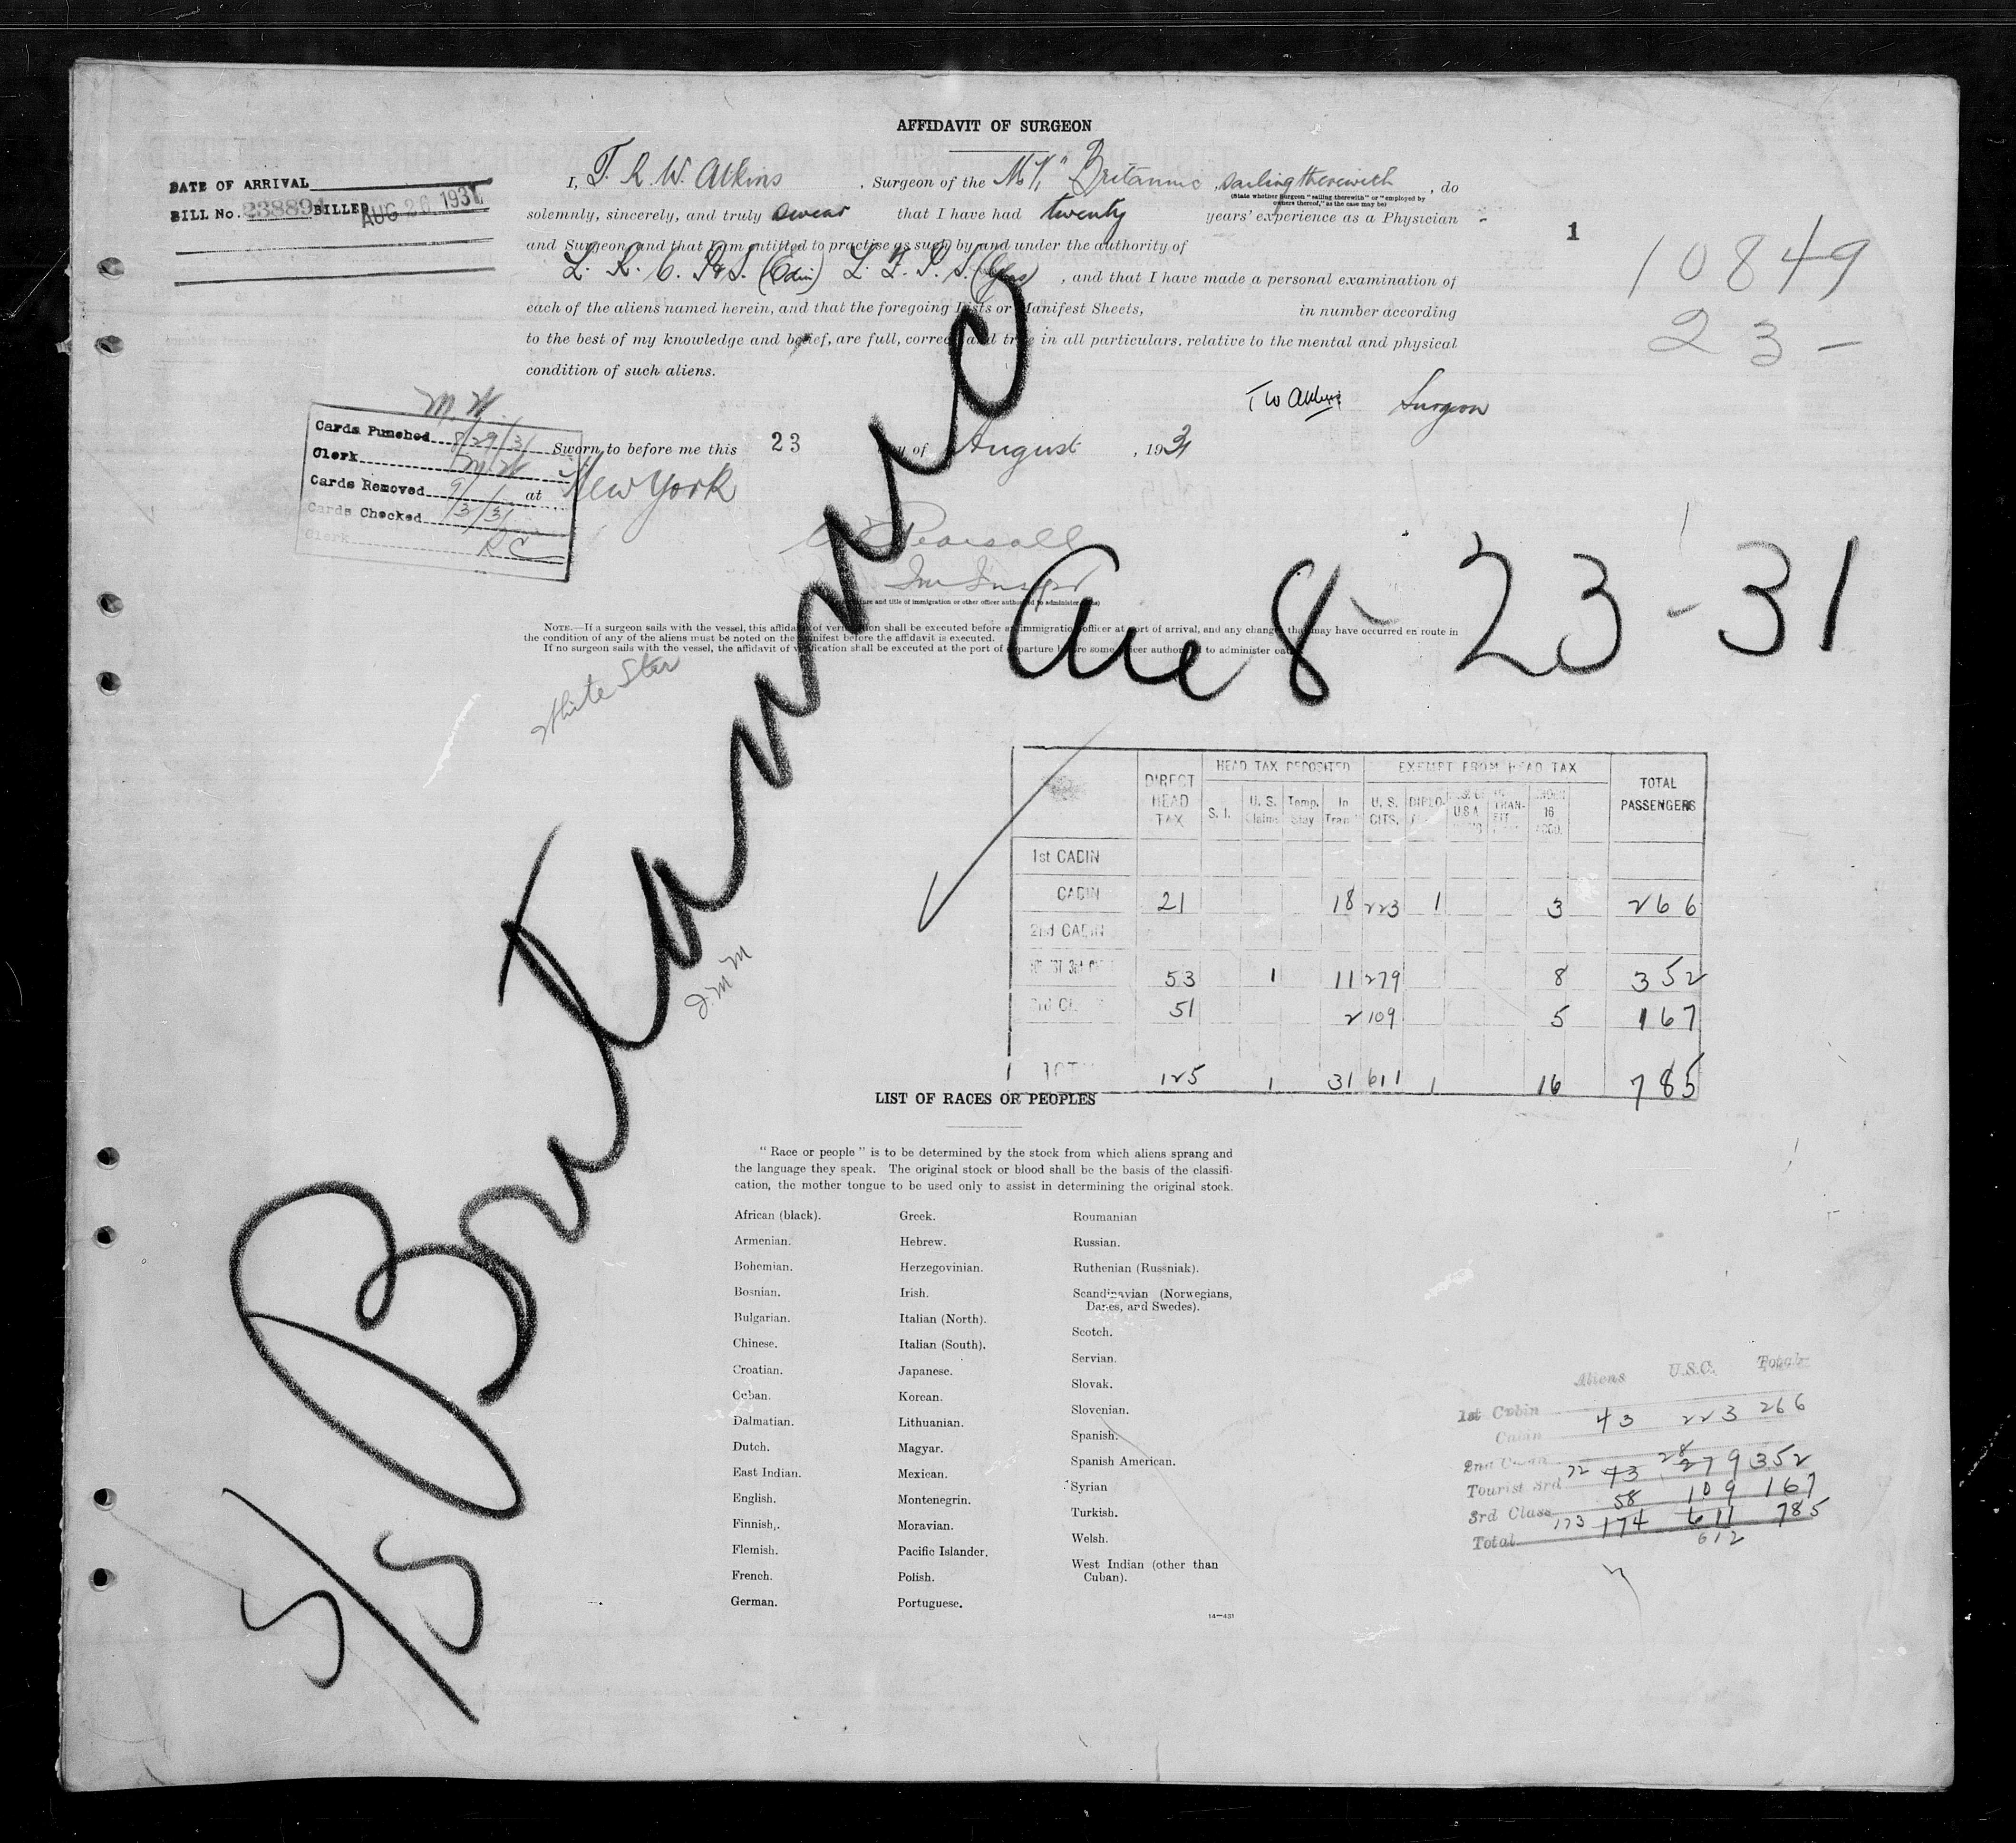 AFFIDAVIT OF SURGEON
DATE OF ARRIVAL
BILL No. 238894 BILLED AUG 26 1931
I, T. R. W. Atkins, Surgeon of the M.V. "Britannic, sailing therewith, do
(State whether surgeon "sailing therewith" or "employed by
owners thereof," as the case may be)
solemnly, sincerely, and truly swear that I have had twenty years' experience as a Physician
and Surgeon, and that I am entitled to practise as such by and under the authority of
L. R. C. P. & S. (Edin) L. F. P. S. (Glas), and that I have made a personal examination of
each of the aliens named herein, and that the foregoing Lists or Manifest Sheets, in number according
to the best of my knowledge and belief, are full, correct and true in all particulars, relative to the mental and physical
condition of such aliens.
1
10849
23 -
T W Atkins Surgeon
M W.
Cards Punched 8/29/31
Clerk MW
Cards Removed 9/1
Cards Checked /3/31
Clerk RC
Sworn to before me this 23 day of August, 1931
at New York
Pearsall
Im Inspr
(Signature and title of immigration or other officer authorized to administer oaths)
NOTE.—If a surgeon sails with the vessel, this affidavit of verification shall be executed before an immigration officer at port of arrival, and any changes that may have occurred en route in
the condition of any of the aliens must be noted on the manifest before the affidavit is executed.
If no surgeon sails with the vessel, the affidavit of verification shall be executed at the port of departure before some officer authorized to administer oaths.
White Star
S/S Britannic
Arr 8-23-31
J. M. M
DIRECT HEAD TAX
HEAD TAX DEPOSITED
EXEMPT FROM HEAD TAX
TOTAL PASSENGERS
S. I. U. S. Claims Temp. Stay In Trans U. S. CITS. DIPLO. U.S.A. TRAN- SIT UNDER 16 ACCO.
1st CABIN
CABIN 21 18 223 1 3 266
2nd CABIN
TOURIST 3rd 53 1 11 279 8 352
3rd CL 51 2 109 5 167
TOTAL 125 1 31 611 1 16 785
LIST OF RACES OR PEOPLES
"Race or people" is to be determined by the stock from which aliens sprang and
the language they speak. The original stock or blood shall be the basis of the classifi-
cation, the mother tongue to be used only to assist in determining the original stock.
African (black).
Armenian.
Bohemian.
Bosnian.
Bulgarian.
Chinese.
Croatian.
Cuban.
Dalmatian.
Dutch.
East Indian.
English.
Finnish.
Flemish.
French.
German.
Greek.
Hebrew.
Herzegovinian.
Irish.
Italian (North).
Italian (South).
Japanese.
Korean.
Lithuanian.
Magyar.
Mexican.
Montenegrin.
Moravian.
Pacific Islander.
Polish.
Portuguese.
Roumanian
Russian.
Ruthenian (Russniak).
Scandinavian (Norwegians,
Danes, and Swedes).
Scotch.
Servian.
Slovak.
Slovenian.
Spanish.
Spanish American.
Syrian
Turkish.
Welsh.
West Indian (other than
Cuban).
14—431
Aliens U.S.C. Total
1st Cabin
Cabin 43 223 266
2nd Cabin
Tourist 3rd 72 73 28 279 352
3rd Class 58 109 167
Total 173 174 611 785
612